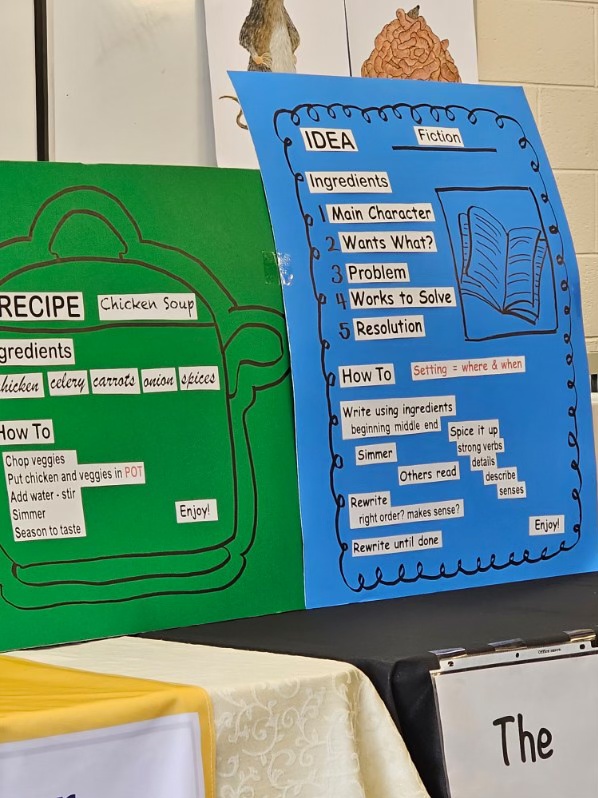 RECIPE Chicken Soup
gredients
hicken celery carrots onion spices
How To
Chop veggies
Put chicken and veggies in POT
Add water - stir
Simmer
Season to taste
Enjoy!
IDEA Fiction
Ingredients
1 Main Character
2 Wants What?
3 Problem
4 Works to Solve
5 Resolution
How To Setting = where & when
Write using ingredients
beginning middle end
Simmer
Spice it up
strong verbs
details
describe
senses
Others read
Rewrite
right order? makes sense?
Rewrite until done
Enjoy!
The